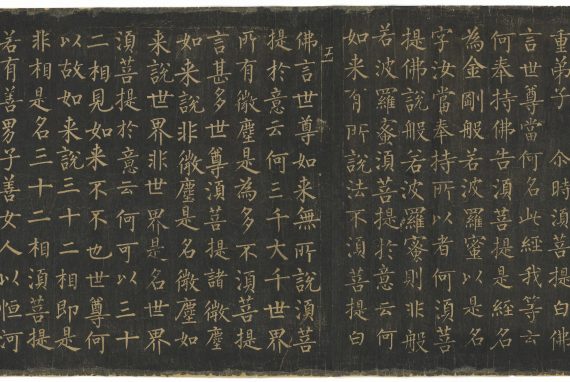 重弟子　尒時須菩提白佛
言世尊當何名此經我等云
何奉持佛告須菩提是經名
為金剛般若波羅蜜以是名
字汝當奉持所以者何須菩
提佛說般若波羅蜜則非般
若波羅蜜須菩提於意云何
如来有所說法不須菩提白
五
佛言世尊如来無所說須菩
提於意云何三千大千世界
所有微塵是為多不須菩提
言甚多世尊須菩提諸微塵
如来說非微塵是名微塵如
来說世界非世界是名世界
須菩提於意云何可以三十
二相見如来不不也世尊何
以故如来說三十二相即是
非相是名三十二相須菩提
若有善男子善女人以恒河